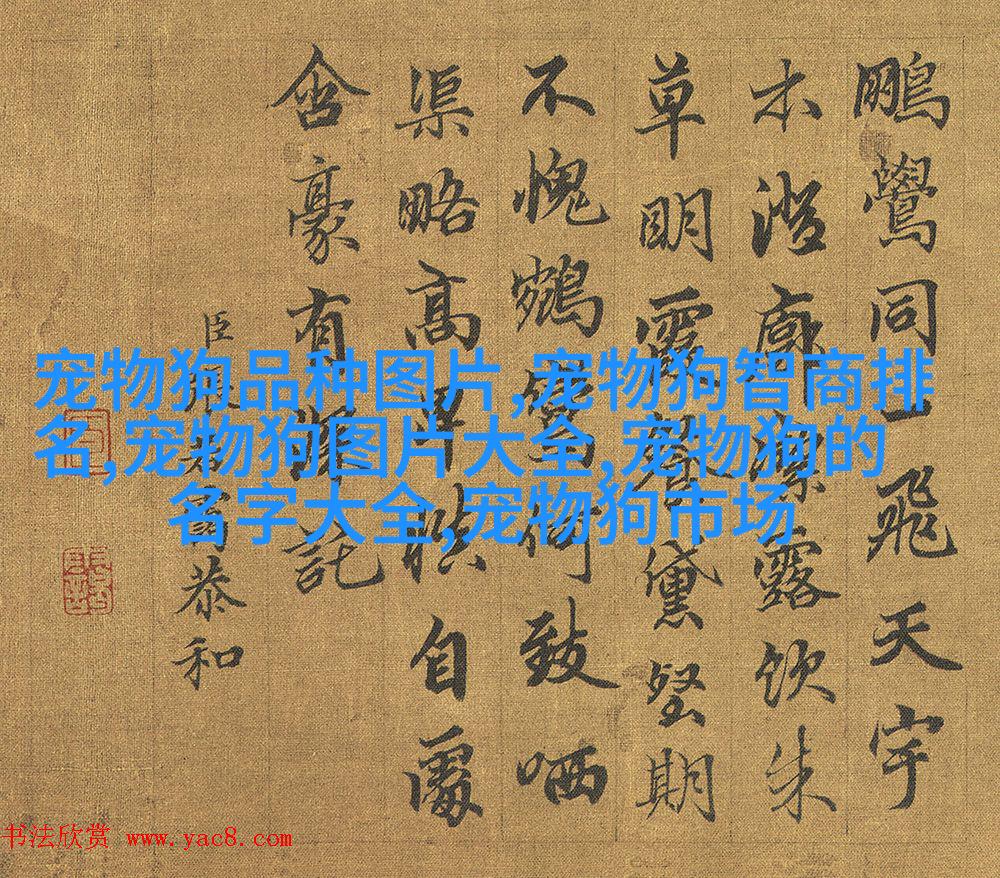 宠物狗品种图片,宠物狗智商排
名,宠物狗图片大全,宠物狗的
名字大全,宠物狗市场
鵬鷽同一飛天宇
木澄廓露飲朱
草明霞黛堅期
不愧鶴何致哂
渠略高卑自
含豪有託
臣恭和
书法欣赏 www.yac8.com